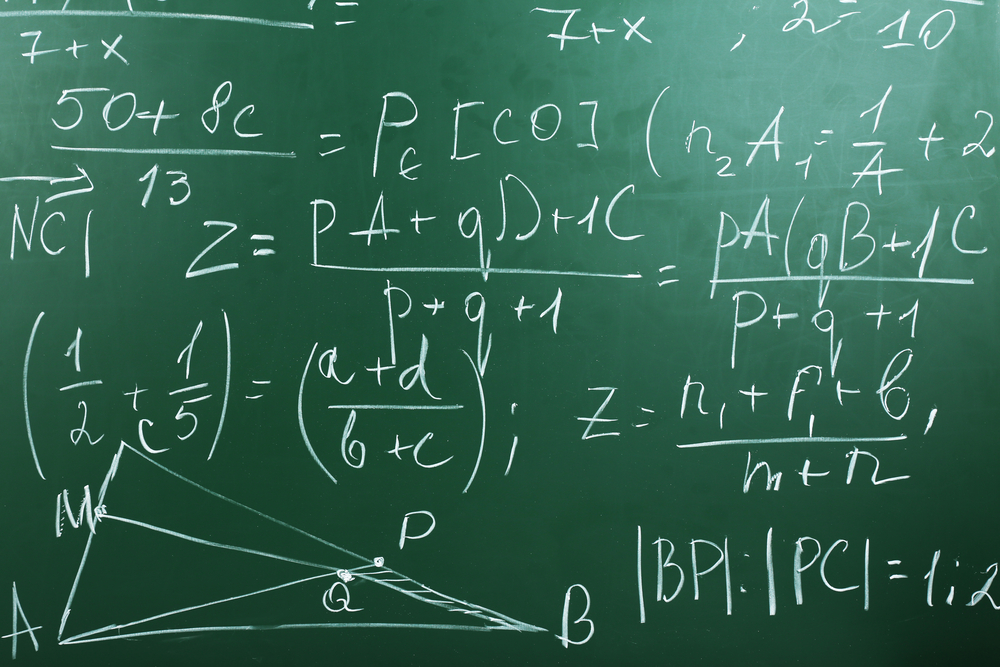 7+x = 7+x ; 2= 10
50+8c/13 = P€ [CO] (n₂A₁=1/A+2
NC| Z= pA+qD+1C/p+q+1 = pA(qB+1C/p+q+1
(1/2+1/5)=(a+d/b+c); Z= n₁+f₁+b,/m+n
C
M
P
Q
A B |BP|:|PC|=1;2